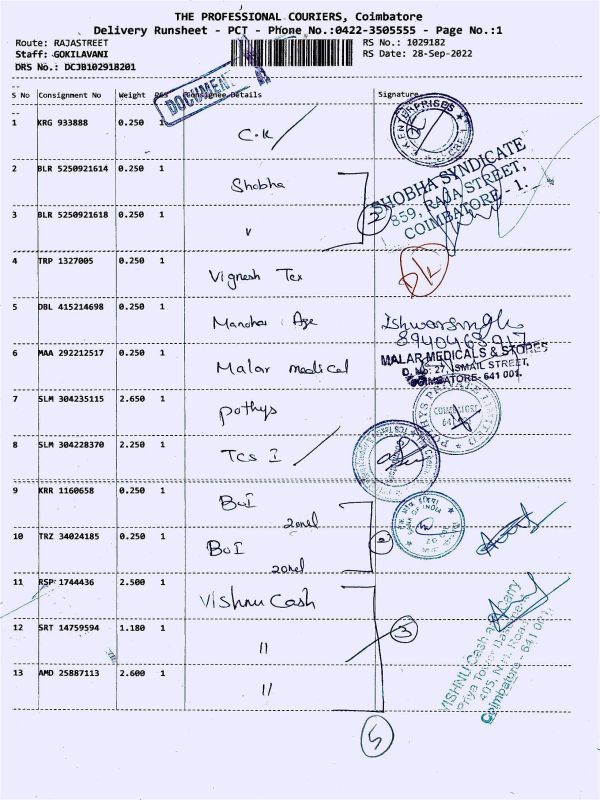 THE PROFESSIONAL COURIERS, Coimbatore
Delivery Runsheet - PCT - Phone No.:0422-3505555 - Page No.:1
Route: RAJASTREET RS No.: 1029182
Staff: GOKILAVANI RS Date: 28-Sep-2022
DRS No.: DCJB102918201
DOCUMENT
S No Consignment No Weight PCS Consignee Details Signature
1 KRG 933888 0.250 1 C.K
ENTERPRISES
2 BLR 5250921614 0.250 1 Shobha
SHOBHA SYNDICATE
859, RAJA STREET,
COIMBATORE - 1.
2
3 BLR 5250921618 0.250 1 "
4 TRP 1327005 0.250 1 Vignesh Tex
5 DBL 415214698 0.250 1 Manohar Age
Ishwarsingh
8940468917
6 MAA 292212517 0.250 1 Malar medical
MALAR MEDICALS & STORES
D. No: 27, ISMAIL STREET,
COIMBATORE- 641 001.
7 SLM 304235115 2.650 1 pothys
POTHYS PRIVATE LIMITED
COIMBATORE
8 SLM 304228370 2.250 1 TCS I
9 KRR 1160658 0.250 1 BoI zonel
BANK OF INDIA
2
10 TRZ 34024185 0.250 1 BoI zonel
11 RSP 1744436 2.500 1 Vishnu Cash
12 SRT 14759594 1.180 1 "
3
13 AMD 25887113 2.600 1 "
VISHNU Cash and Carry
Priya Tower Basement
405, N.H. Road
Coimbatore - 641 001.
5